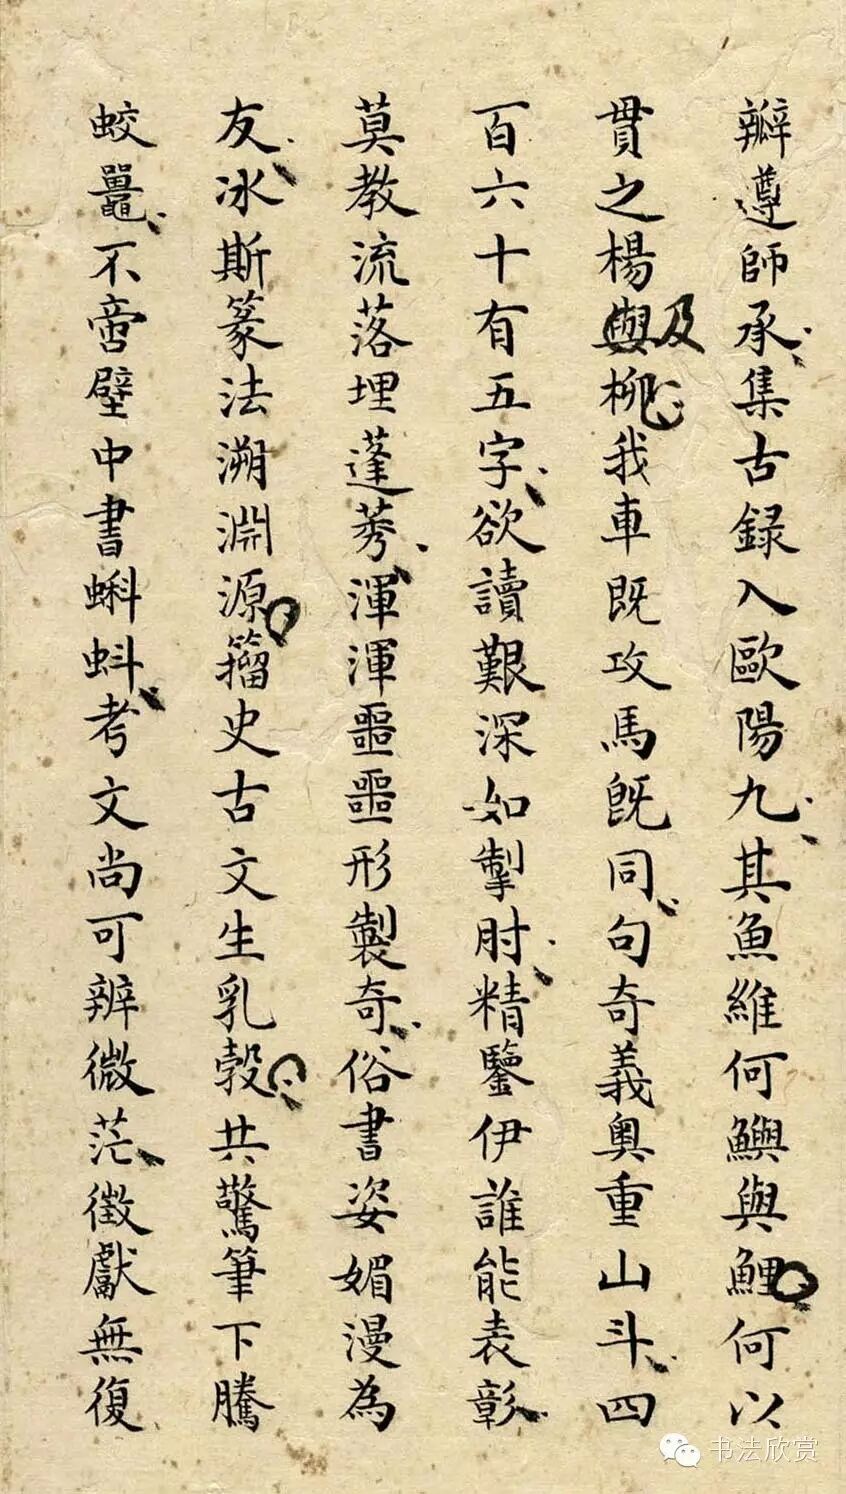 瓣遵師承集古録入歐陽九其魚維何鱮與鯉何以
貫之楊與及柳我車既攻馬既同句奇義奥重山斗四
百六十有五字欲讀艱深如掣肘精鑒伊誰能表彰
莫教流落埋蓬莠渾渾噩噩形製奇俗書姿媚漫為
友冰斯篆法溯淵源籀史古文生乳彀共驚筆下騰
蛟鼉不啻壁中書蝌蚪考文尚可辨微茫徵獻無復
书法欣赏